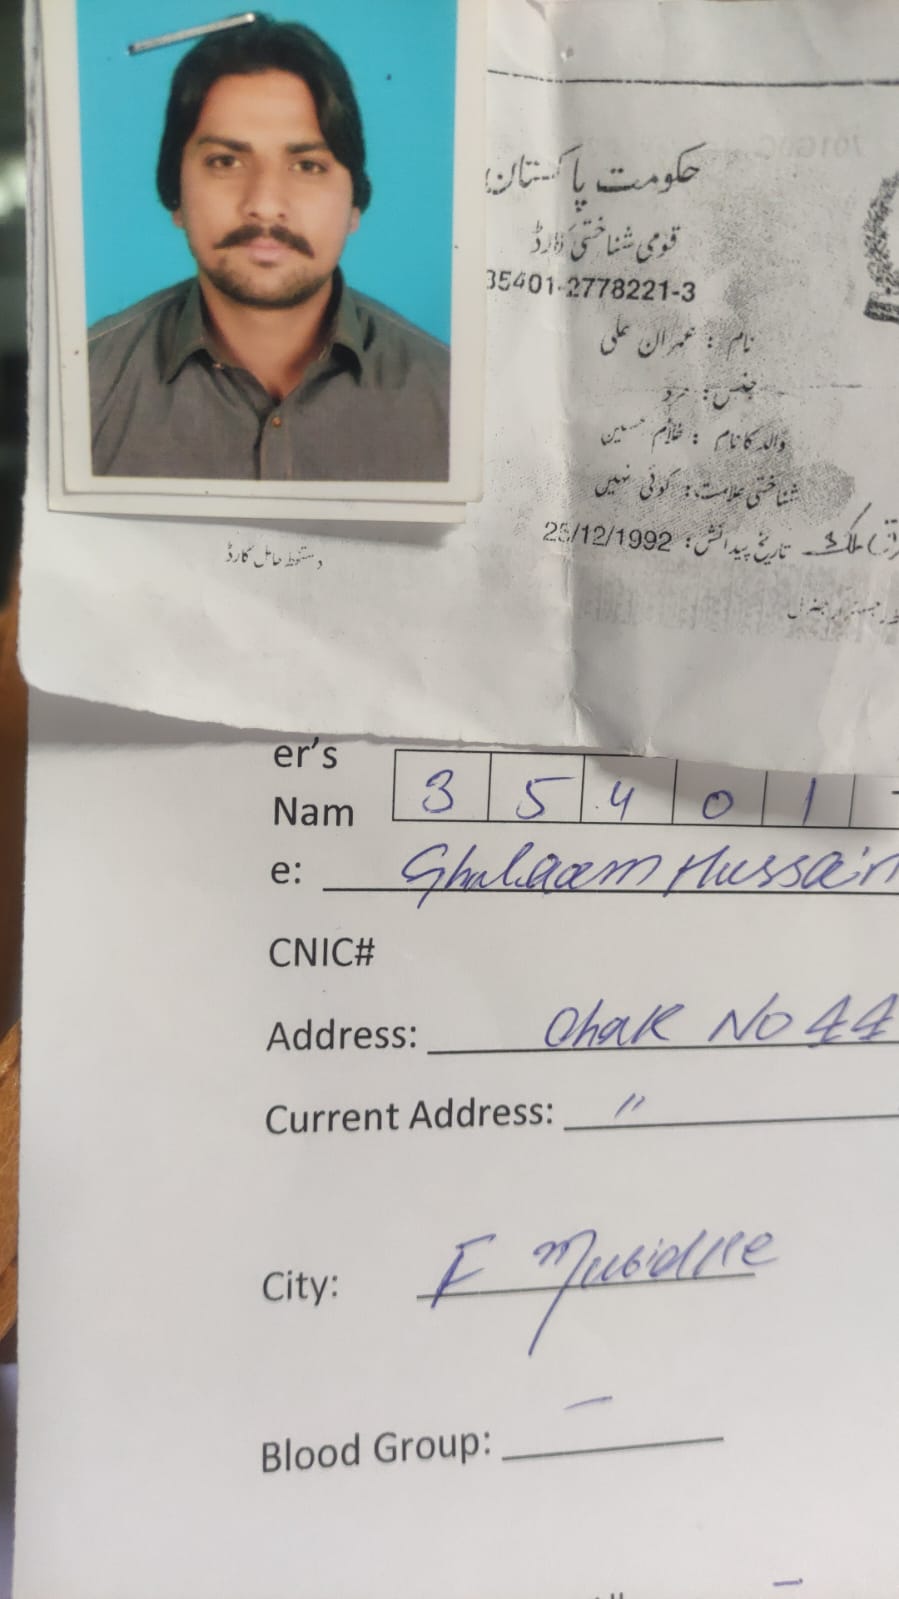 حکومت پاکستان
قومی شناختی کارڈ
35401-2778221-3
نام : عمران علی
جنس: مرد
والد کا نام : غلام حسین
شناختی علامت: کوئی نہیں
تاریخ پیدائش: 25/12/1992
دستخط حامل کارڈ
er's
Nam
3 5 4 0 1 -
e: Ghulaam Hussain
CNIC#
Address: Chak No 44
Current Address: "
City:
Blood Group: –